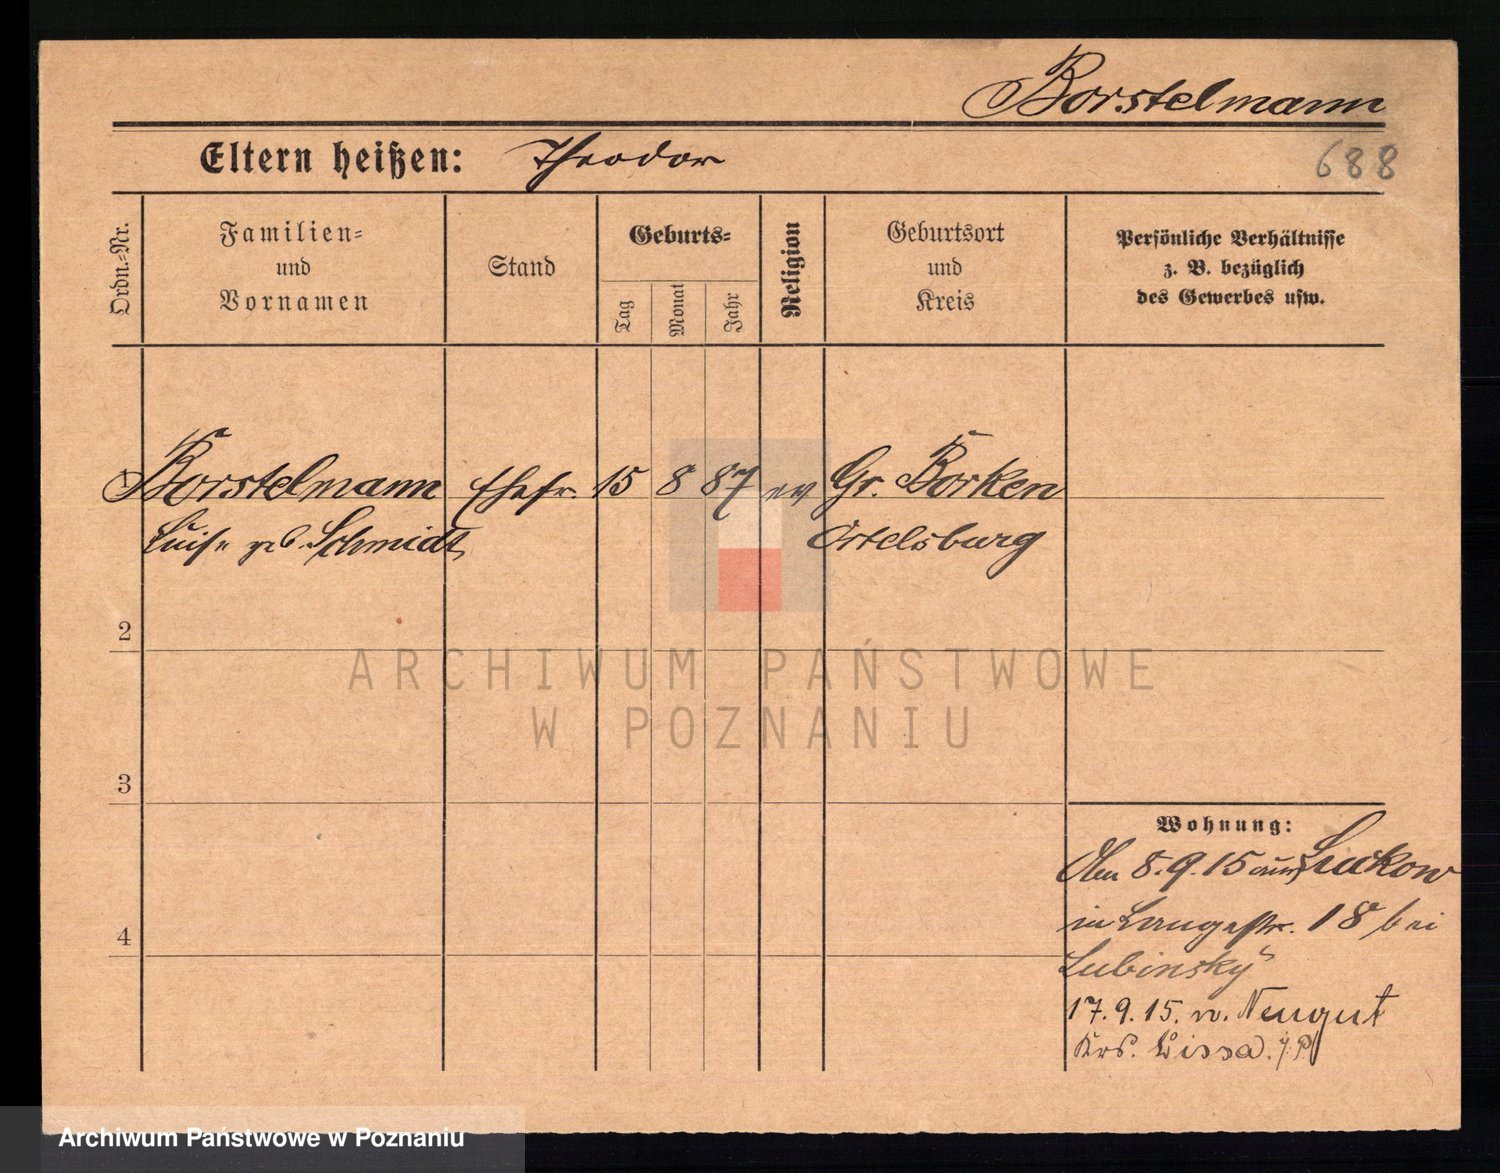 Borstelmann
Eltern heißen: Theodor
688
Ordn.-Nr.
Familien-
und
Vornamen
Stand
Geburts-
Tag
Monat
Jahr
Religion
Geburtsort
und
Kreis
Persönliche Verhältnisse
z. B. bezüglich
des Gewerbes usw.
1 Borstelmann Ehefr. 15 8 87 ev Gr. Borken
Luise geb. Schmidt Ortelsburg
2
ARCHIWUM PAŃSTWOWE
W POZNANIU
3
Wohnung:
8.9.15 aus Luckow
in Langestr. 18 bei
Lubinsky
4
17.9.15. n. Neugut
Krs. Lissa. i. P.
Archiwum Państwowe w Poznaniu